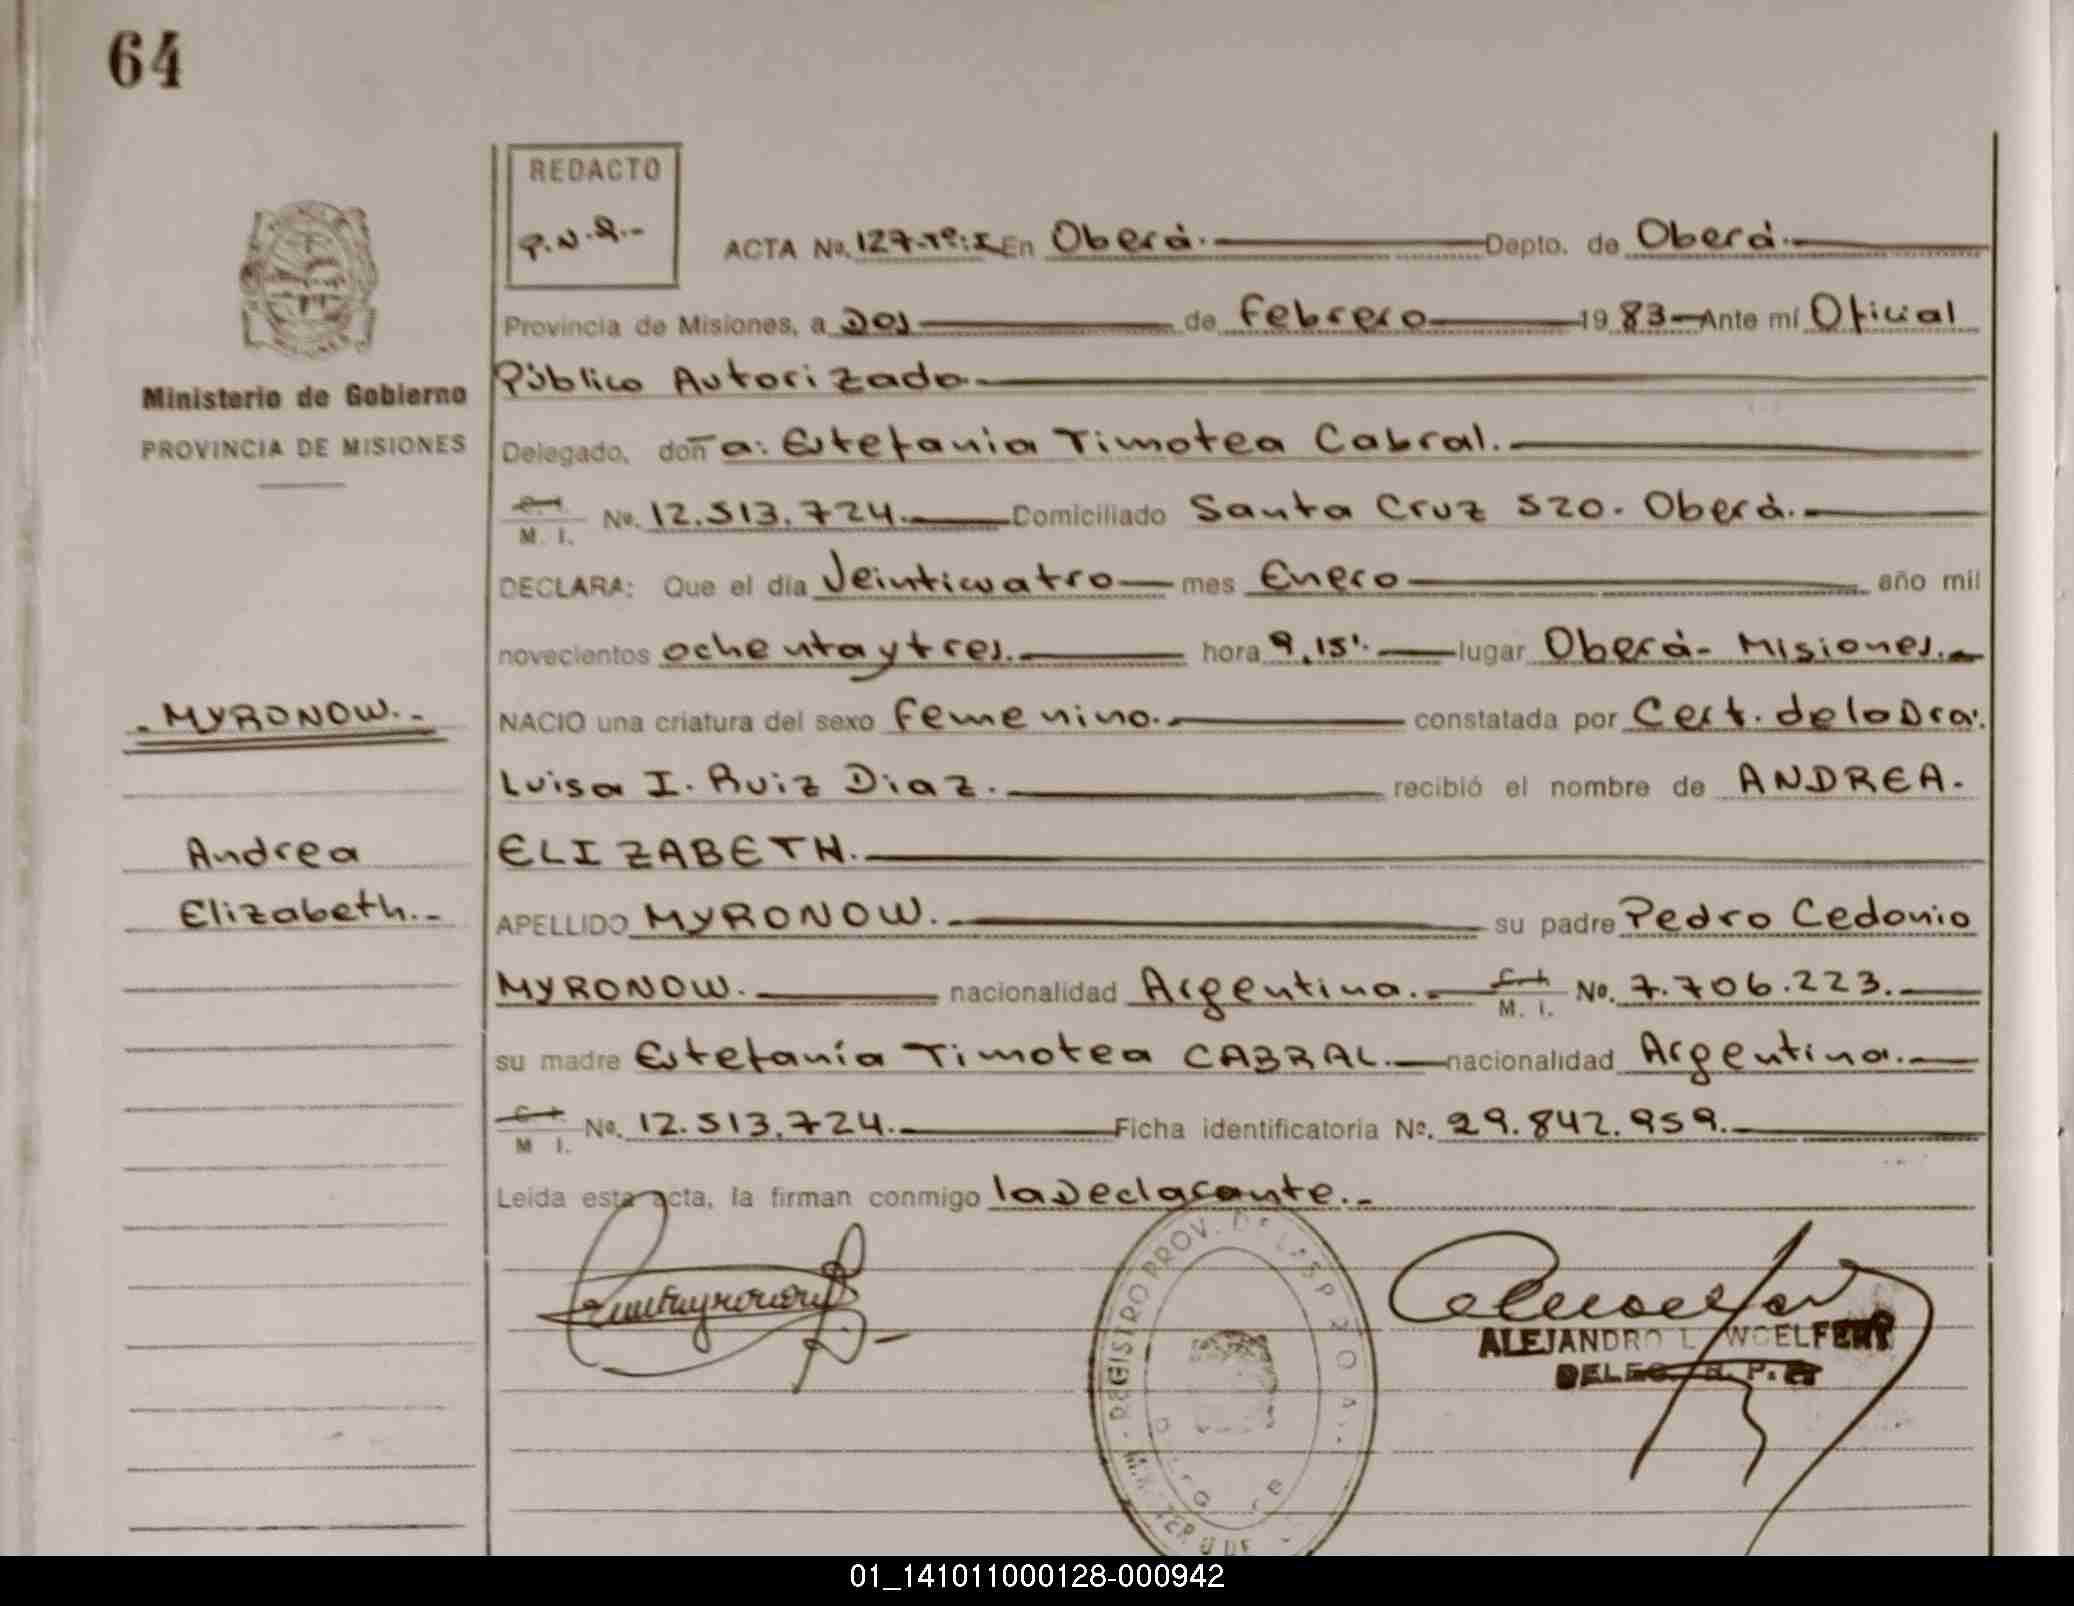 64
REDACTO
P.N.R.-
ACTA No. 127-Tº:I En Oberá. Depto. de Oberá.
Ministerio de Gobierno
PROVINCIA DE MISIONES
Provincia de Misiones, a Dos de Febrero 19 83 Ante mí Oficial
Público Autorizado.
Delegado, doña: Estefania Timotea Cabral.
M. I. No. 12.513.724. Domiciliado Santa Cruz 520. Oberá.
DECLARA: Que el día Veinticuatro mes Enero año mil
novecientos ochentaytres. hora 9,15'. lugar Oberá- Misiones.-
NACIO una criatura del sexo Femenino. constatada por Cert. de la Dra.
Luisa I. Ruiz Diaz. recibió el nombre de ANDREA.
ELIZABETH.
APELLIDO MYRONOW. su padre Pedro Cedonio
MYRONOW. nacionalidad Argentina. C. I. M. I. No. 7.706.223.
su madre Estefanía Timotea CABRAL. nacionalidad Argentina.
C. I. M I. No. 12.513.724. Ficha identificatoria No. 29.842.959.
Leída esta acta, la firman conmigo la Declarante.-
-MYRONOW.-
Andrea
Elizabeth.-
REGISTRO PROV. DE LAS P
ALEJANDRO L WOELFERT
DELEG. R. P.
01_141011000128-000942